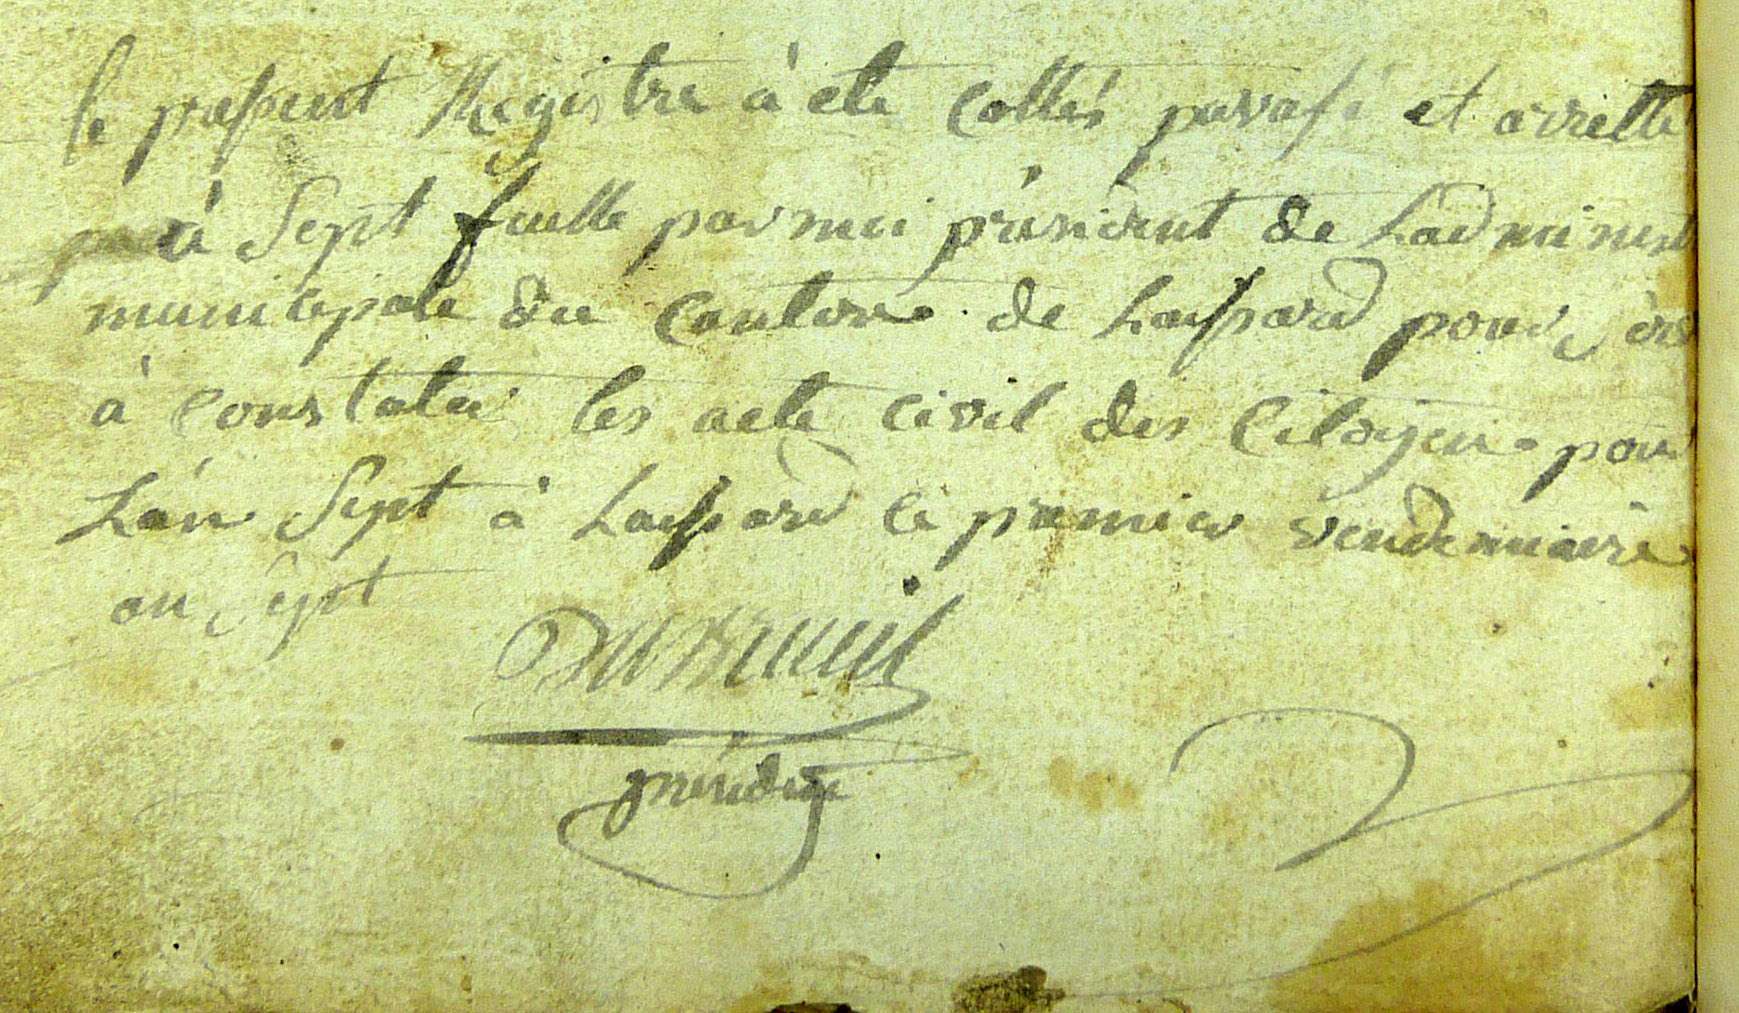 le present Registre à ete collés parafé et arretté
à Sept fuelle par moi président de Ladminist
municipale du Canton de Laissard pour
à constater les acte Civil des Citoyen pour
Lan Sept à Laissard le premier vendemiaire
an Sept
président